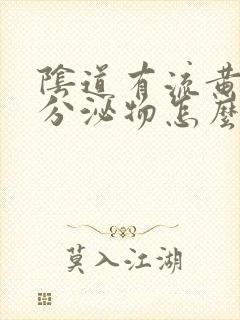 陰道有流黃
分泌物怎麼
莫入江湖